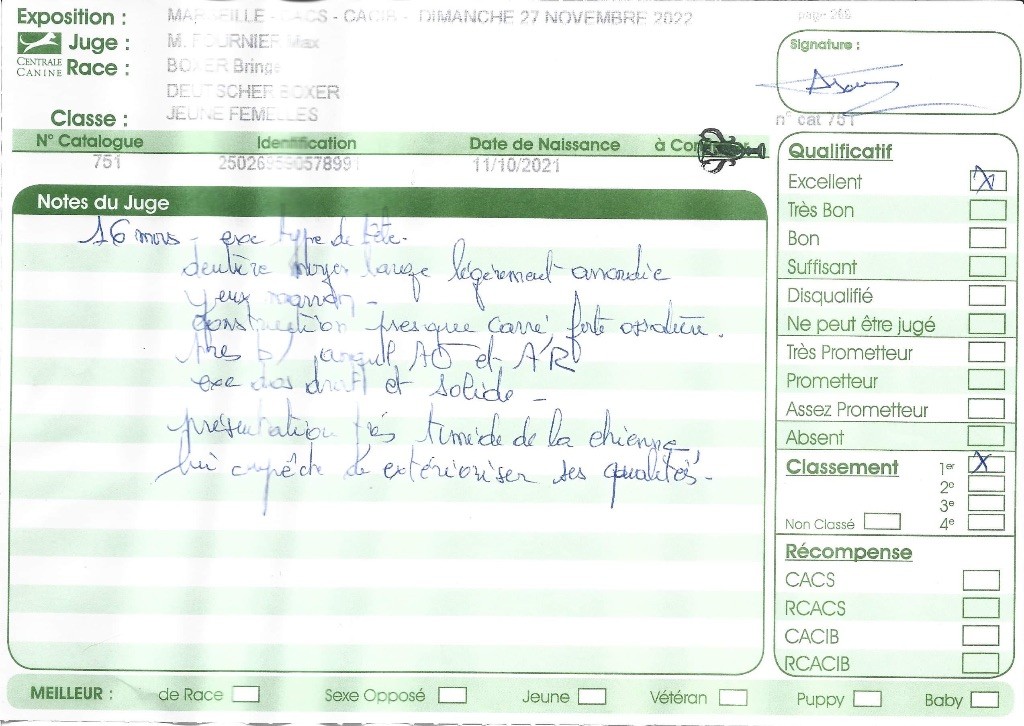 Exposition : MARSEILLE - CACS - CACIB - DIMANCHE 27 NOVEMBRE 2022
page 268
Juge : M. FOURNIER Max
CENTRALE CANINE
Race : BOXER Bringé
DEUTSCHER BOXER
Classe : JEUNE FEMELLES
Signature :
n° cat 751
N° Catalogue Identification Date de Naissance à Con
751 250269590578991 11/10/2021
Notes du Juge
16 mois - exc type de tête.
denture large légèrement arrondie
yeux marron -
construction presque carré, forte ossature.
très b/ angul AV et AR
exc dos droit et solide -
présentation très timide de la chienne
lui empêche d'extérioriser ses qualités -
Qualificatif
Excellent X
Très Bon
Bon
Suffisant
Disqualifié
Ne peut être jugé
Très Prometteur
Prometteur
Assez Prometteur
Absent
Classement 1er X
2e
3e
Non Classé 4e
Récompense
CACS
RCACS
CACIB
RCACIB
MEILLEUR : de Race Sexe Opposé Jeune Vétéran Puppy Baby